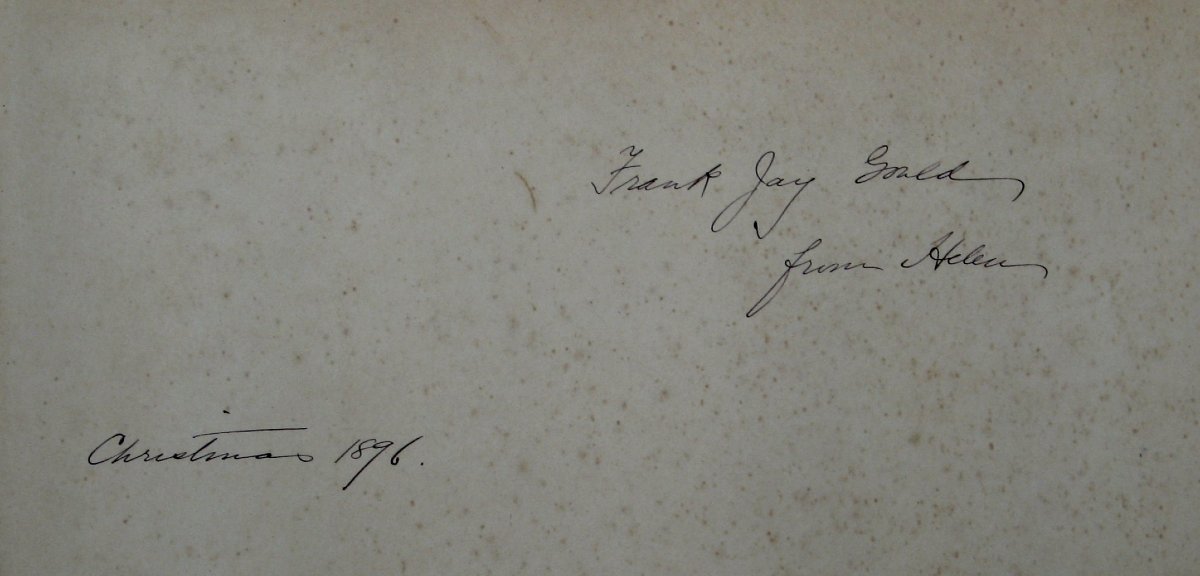 Frank Jay Gould
from Helen
Christmas 1896.